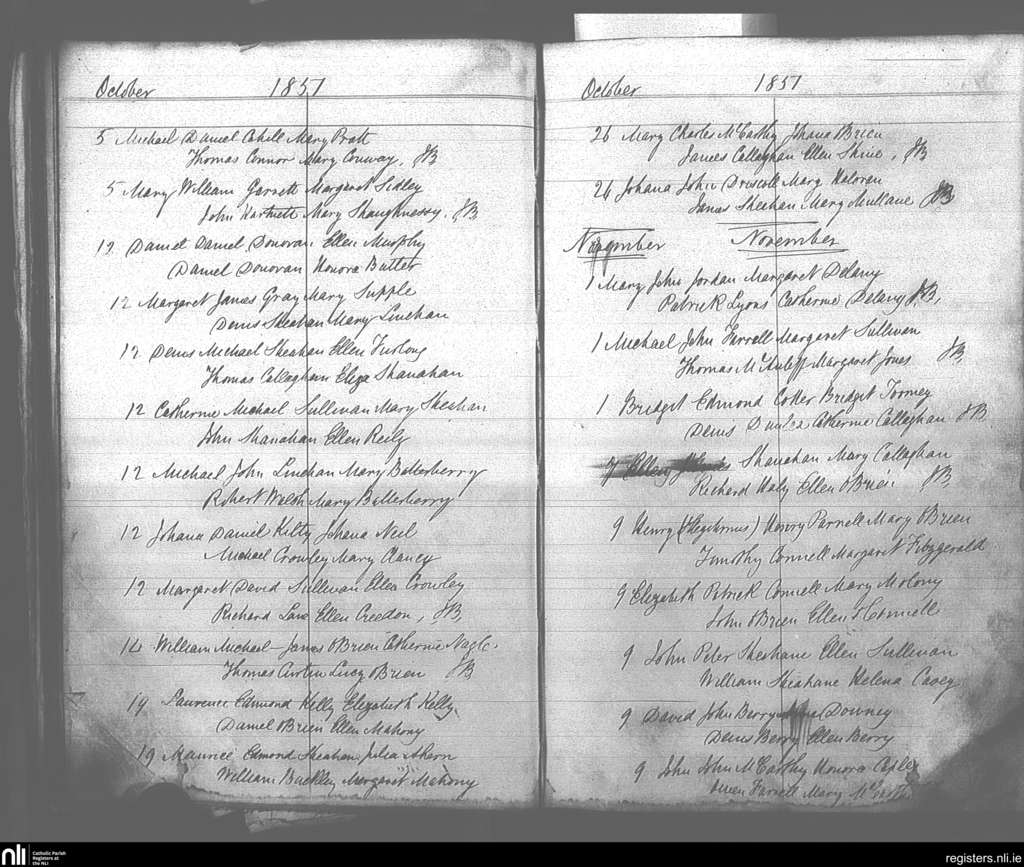 October 1851
5 Michael Daniel Cahill Mary Pratt
Thomas Connor Mary Conway, JB
5 Mary William Garrett Margaret Sidley
John Hartnett Mary Shaughnessy. JB
12 Daniel Daniel Donovan Ellen Murphy
Daniel Donovan Honora Butler
12 Margaret James Gray Mary Supple
Denis Sheahan Mary Linehan
12 Denis Michael Sheahan Ellen Furlong
Thomas Callaghan Eliza Shanahan
12 Catherine Michael Sullivan Mary Sheehan
John Shanahan Ellen Reily
12 Michael John Linehan Mary Batterberry
Robert Walsh Mary Batterberry
12 Johana Daniel Kilty Johana Neil
Michael Crowley Mary Clancy
12 Margaret David Sullivan Ellen Crowley
Richard Lane Ellen Creedon, JB,
14 William Michael James OBrien Catherine Nagle.
Thomas Curtin Lucy OBrien JB
19 Laurence Edmond Kelly Elizabeth Kelly
Daniel OBrien Ellen Mahony
19 Maurice Edmond Sheahan Julia Ahern
William Buckley Margaret Mahony
October 1851
26 Mary Charles McCarthy Johana OBrien
James Callaghan Ellen Shine, JB
26 Johana John Driscoll Mary Haloran
James Sheehan Mary Mullane JB
November November
1 Mary John Jordan Margaret Delany
Patrick Lyons Catherine Delany JB,
1 Michael John Farrell Margaret Sullivan
Thomas McAuliff Margaret Jones JB,
1 Bridget Edmond Cotter Bridget Toomey
Denis Catherine Callaghan JB
7 Ellen Shanahan Mary Callaghan
Richard Haly Ellen OBrien JB,
9 Henry (Illegitimus) Henry Parnell Mary OBrien
Timothy Connell Margaret Fitzgerald
9 Elizabeth Patrick Connell Mary Molony
John OBrien Ellen OConnell
9 John Peter Sheehane Ellen Sullivan
William Sheahane Helena Casey
9 David John Berry Downey
Denis Berry Ellen Berry
9 John John McCarthy Honora
Owen Farrell Mary McCarthy
nli Catholic Parish
Registers at
the NLI
registers.nli.ie